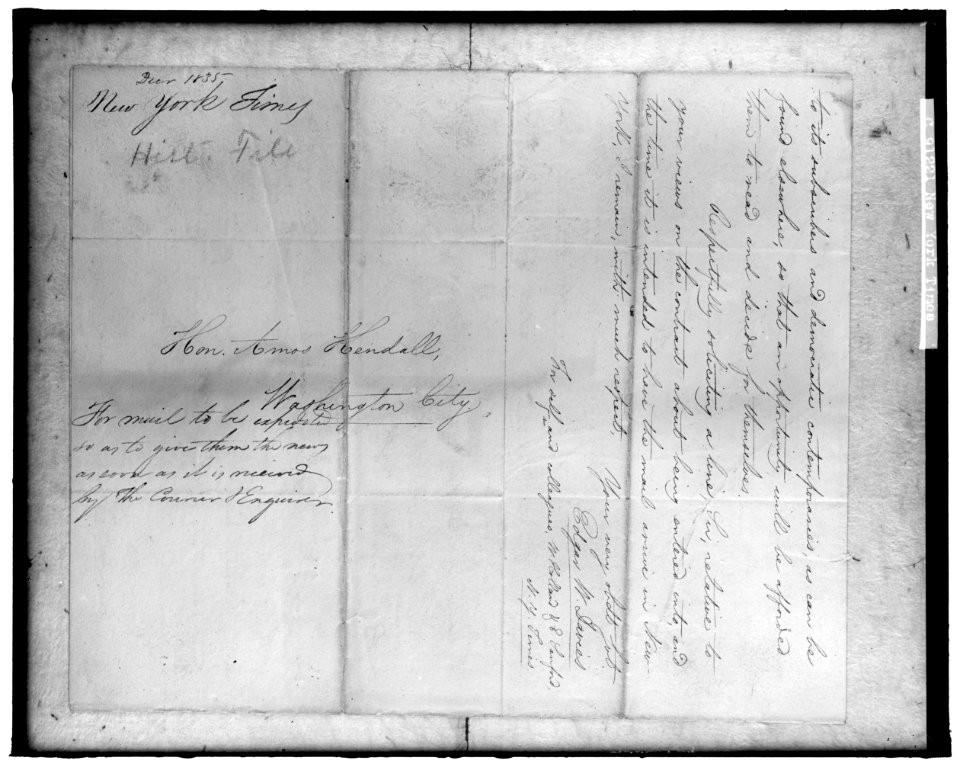 Decr 1835
New York Times
Hist. File
Hon. Amos Kendall,
Washington City.
For mail to be expedited
so as to give them the news
as soon as it is received
by the Courier & Enquirer
to its subscribers and democratic contemporaries, as can be
found elsewhere, so that an opportunity will be afforded
them to read and decide for themselves.
Respectfully soliciting a line, Sir, relative to
your views on the contract about being entered into, and
the time it is intended to have the mail arrive in New-
York, I remain, with much respect,
Your very obdt Svt
Edgar W Davies
For self and colleagues, W Holland & E Sanford.
N. Y. Times
New York Times